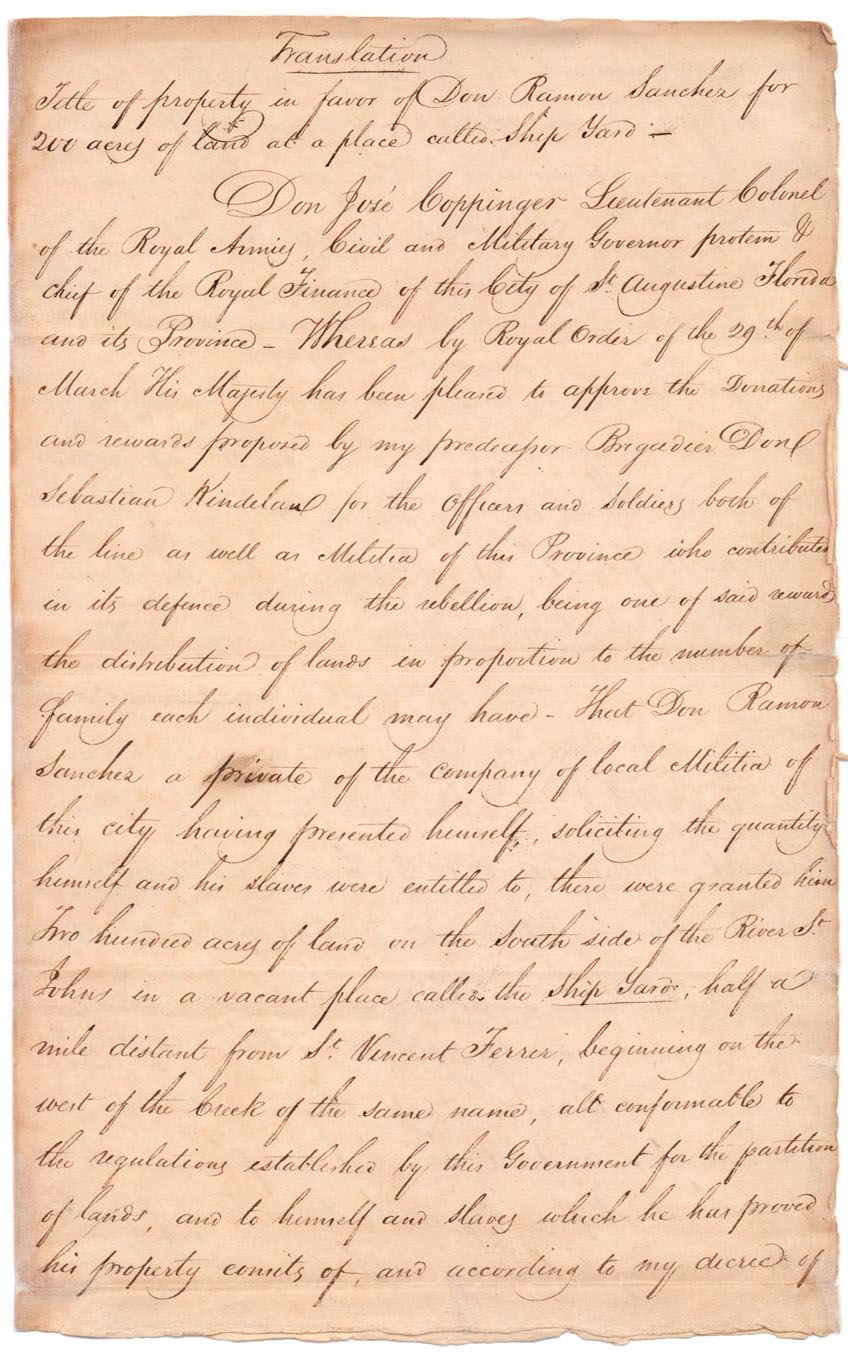 Translation
Title of property in favor of Don Ramon Sanchez for
200 acres of land at a place called Ship Yard —
Don José Coppinger Lieutenant Colonel
of the Royal Armies, Civil and Military Governor protem &
chief of the Royal Finance of this City of St. Augustine Florida
and its Province - Whereas by Royal Order of the 29th of
March His Majesty has been pleased to approve the Donations
and rewards proposed by my predecessor Brigadier Don
Sebastian Kindelan for the officers and soldiers both of
the line as well as Militia of this Province who contributed
in its defence during the rebellion, being one of said rewards
the distribution of lands in proportion to the number of
family each individual may have - That Don Ramon
Sanchez a private of the company of local Militia of
this city having presented himself, soliciting the quantity
himself and his slaves were entitled to, there were granted him
Two hundred acres of land on the south side of the River St.
Johns in a vacant place called the Ship Yard, half a
mile distant from St. Vincent Ferrer, beginning on the
west of the Creek of the same name, all conformable to
the regulations established by this Government for the partition
of lands, and to himself and slaves which he has proved
his property consits of, and according to my decree of